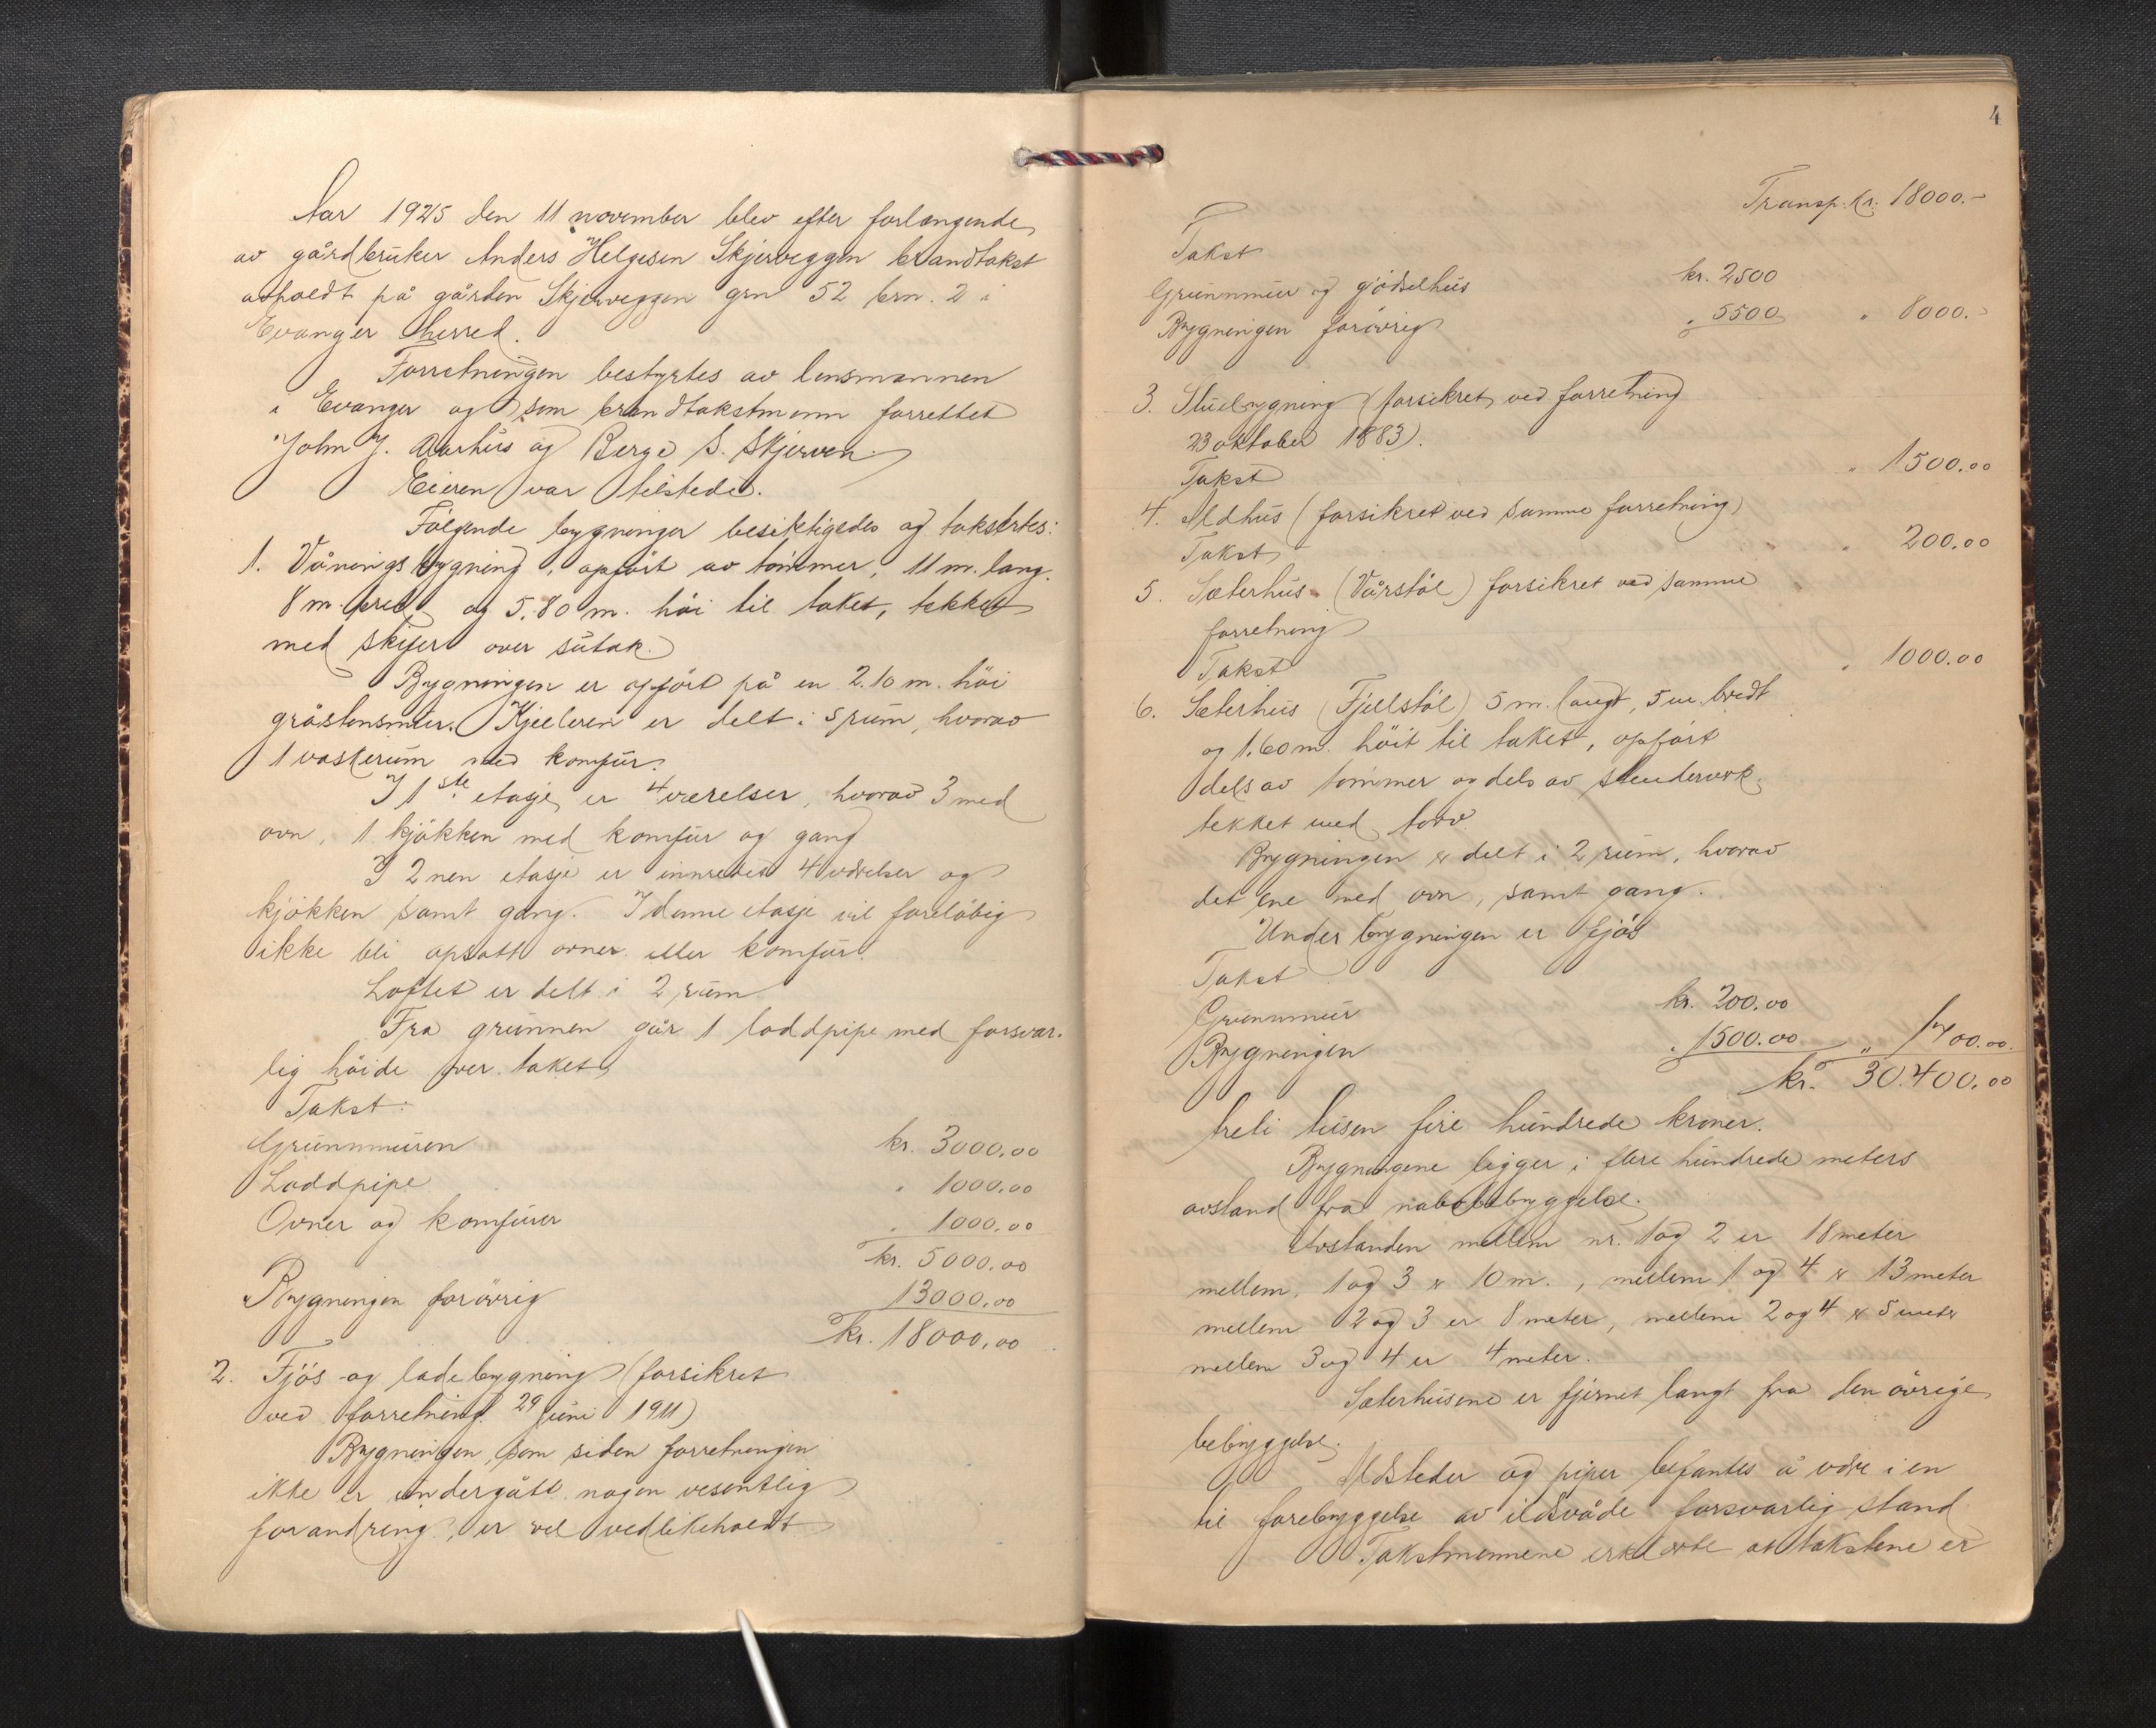 Aar 1925 den 11 november blev efter forlangende
av gårdbruker Anders Helgesen Skjerveggen brandtakst
avholdt på gården Skjerveggen grn 52 brn. 2 i
Evanger herred.
Forretningen bestyrtes av lensmannen
i Evanger og som brandtakstmenn forrettet
John J. Aarhus og Berge S. Skjerven.
Eieren var tilstede.
Følgende bygninger besiktigedes og takstertes:
1. Våningsbygning, opført av tømmer, 11 m. lang.
8 m. bred og 5.80 m. høi til taket, tekket
med skifer over sutak.
Bygningen er opført på en 2.10 m. høi
gråstensmur. Kjelleren er delt i 5 rum, hvorav
1 vaskerum med komfur.
I 1ste etasje er 4 værelser, hvorav 3 med
ovn, 1 kjøkken med komfur og gang
I 2nen etasje er innredet 4 værelser og
kjøkken samt gang. I denne etasje vil foreløbig
ikke bli opsatt ovner eller komfur.
Loftet er delt i 2 rum
Fra grunnen går 1 loddpipe med forsvar-
lig høide over taket
Takst:
Grunnmuren kr. 3000.00
Loddpipe " 1000.00
Ovner og komfurer " 1000.00
kr. 5000.00
Bygningen forøvrig 13000.00
kr. 18000.00
2. Fjøs- og ladebygning (forsikret
ved forretning 29 juni 1911)
Bygningen, som siden forretningen
ikke er undergått nogen vesentlig
forandring, er vel vedlikeholdt
4
Transp. kr. 18000.-
Takst
Grunnmur og gjødselhus kr. 2500
Bygningen forøvrig " 5500 " 8000.-
3. Stuebygning (forsikret ved forretning
23 oktober 1883).
Takst " 1500.00
4. Ildhus (forsikret ved samme forretning)
Takst " 200.00
5. Sæterhus (Vårstøl) forsikret ved samme
forretning
Takst " 1000.00
6. Sæterhus (Fjellstøl) 5 m. langt, 5 m. bredt
og 1.60 m. høit til taket, opført
dels av tømmer og dels av stenderverk
tekket med torv
Bygningen er delt i 2 rum, hvorav
det ene med ovn, samt gang.
Under bygningen er fjøs
Takst
Grunnmur kr. 200.00
Bygningen " 1500.00 " 1700.00.
kr. 30.400.00
treti tusen fire hundrede kroner.
Bygningene ligger i flere hundrede meters
avstand fra nabobebyggelse.
Avstanden mellem nr. 1 og 2 er 18 meter
mellem 1 og 3 er 10 m., mellem 1 og 4 er 13 meter
mellem 2 og 3 er 8 meter, mellem 2 og 4 er 5 meter
mellem 3 og 4 er 4 meter.
Sæterhusene er fjernet langt fra den øvrige
bebyggelse.
Ildsteder og piper befantes å være i en
til forebyggelse av ildsvåde forsvarlig stand
Takstmennene erklærte at takstene er